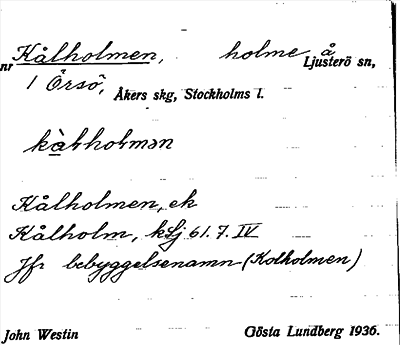 Kålholmen, holme å
nr 1 Örsö, Ljusterö sn,
Åkers skg, Stockholms l.
kàlholmən
Kålholmen, ek
Kålholm, klj 61.7. IV
Jfr bebyggelsenamn (Kolholmen)
John Westin Gösta Lundberg 1936.